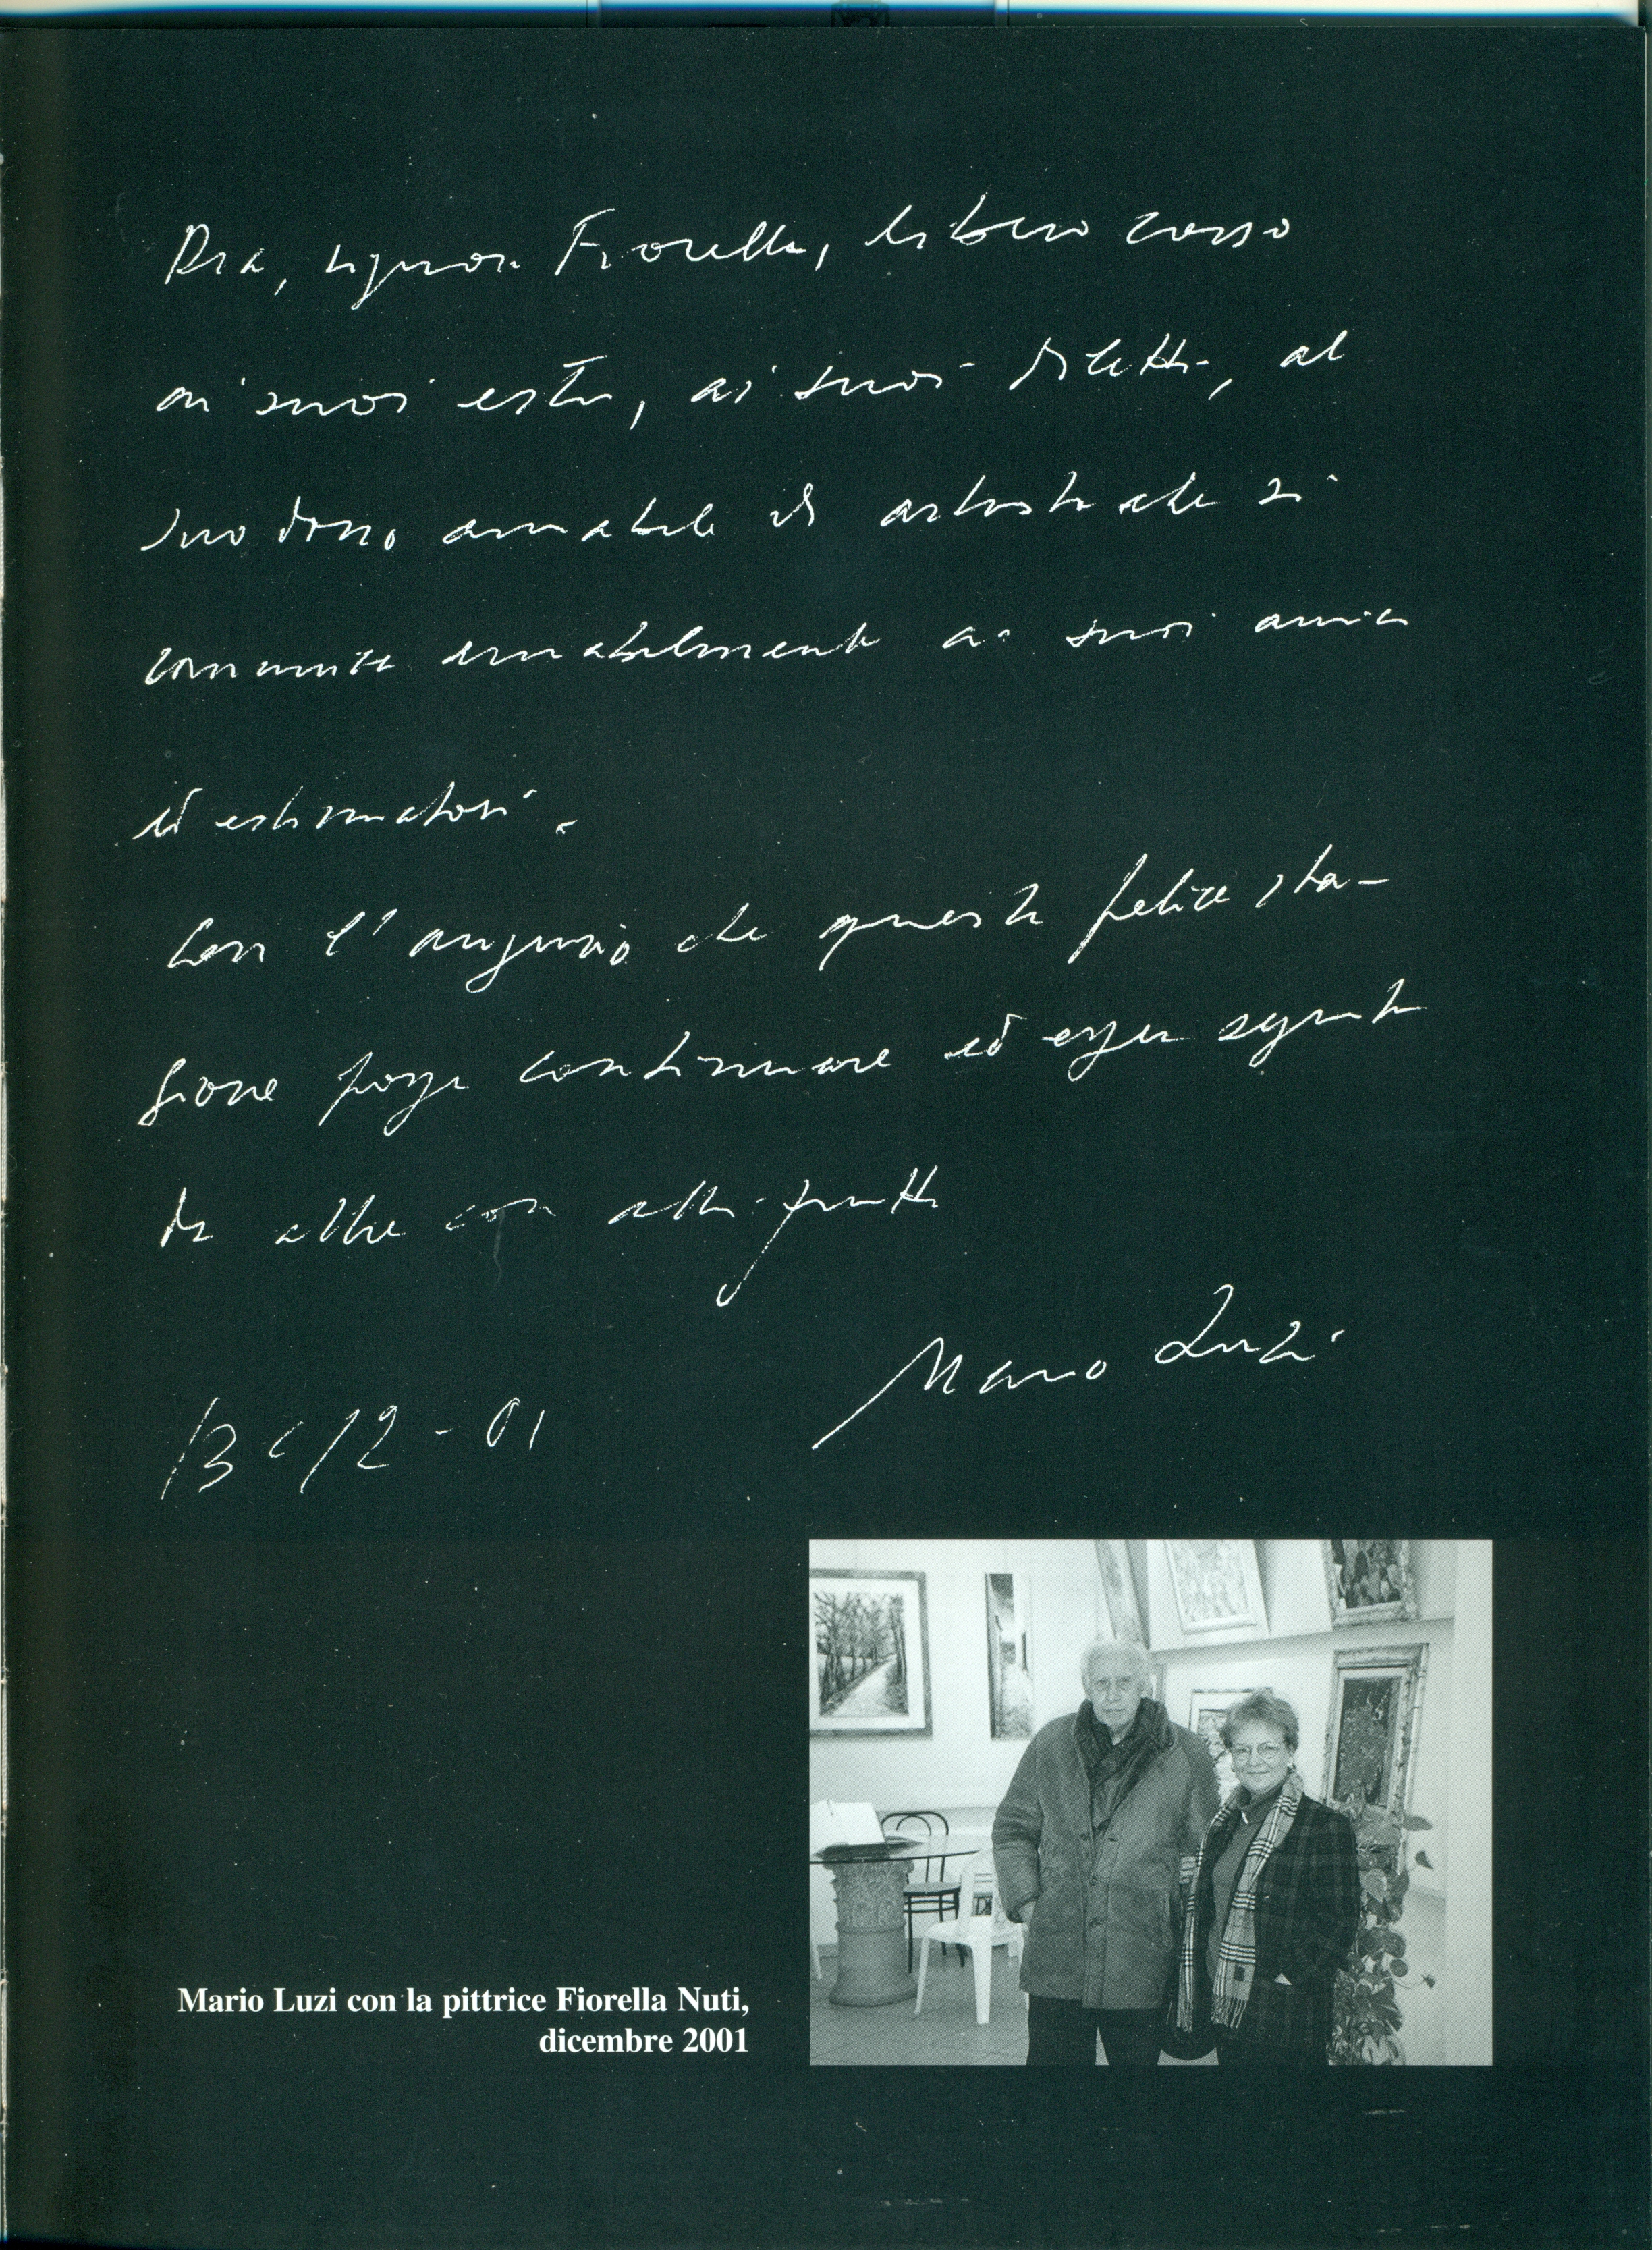 Dia, signora Fiorella, libero corso
ai suoi estri, ai suoi diletti, al
suo dono amabile di artista che si
comunica amabilmente ai suoi amici
ed estimatori.
Con l'augurio che questa felice sta-
gione possa continuare ed esser seguita
da altre con altri frutti
Mario Luzi
13-12-01
Mario Luzi con la pittrice Fiorella Nuti,
dicembre 2001